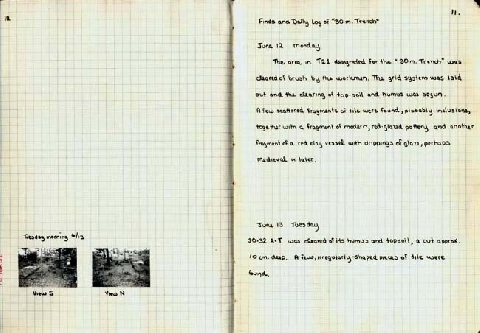 Tuesday morning 6/13
View S
View N
11.
Finds and Daily Log of "30 m. Trench"
June 12 Monday
The area, in T21 designated for the "30m. Trench" was
cleared of brush by the workmen. The grid system was laid
out and the clearing of top soil and humus was begun.
A few scattered fragments of tile were found, probably inclusions,
together with a fragment of modern, red-glazed pottery and another
fragment of a red clay vessel with drippings of glaze, perhaps
Medieval or later.
June 13 Tuesday
was cleared of its humus and topsoil, a cut approx.
10 cm. deep. A few, irregularly-shaped pieces of tile were
found.